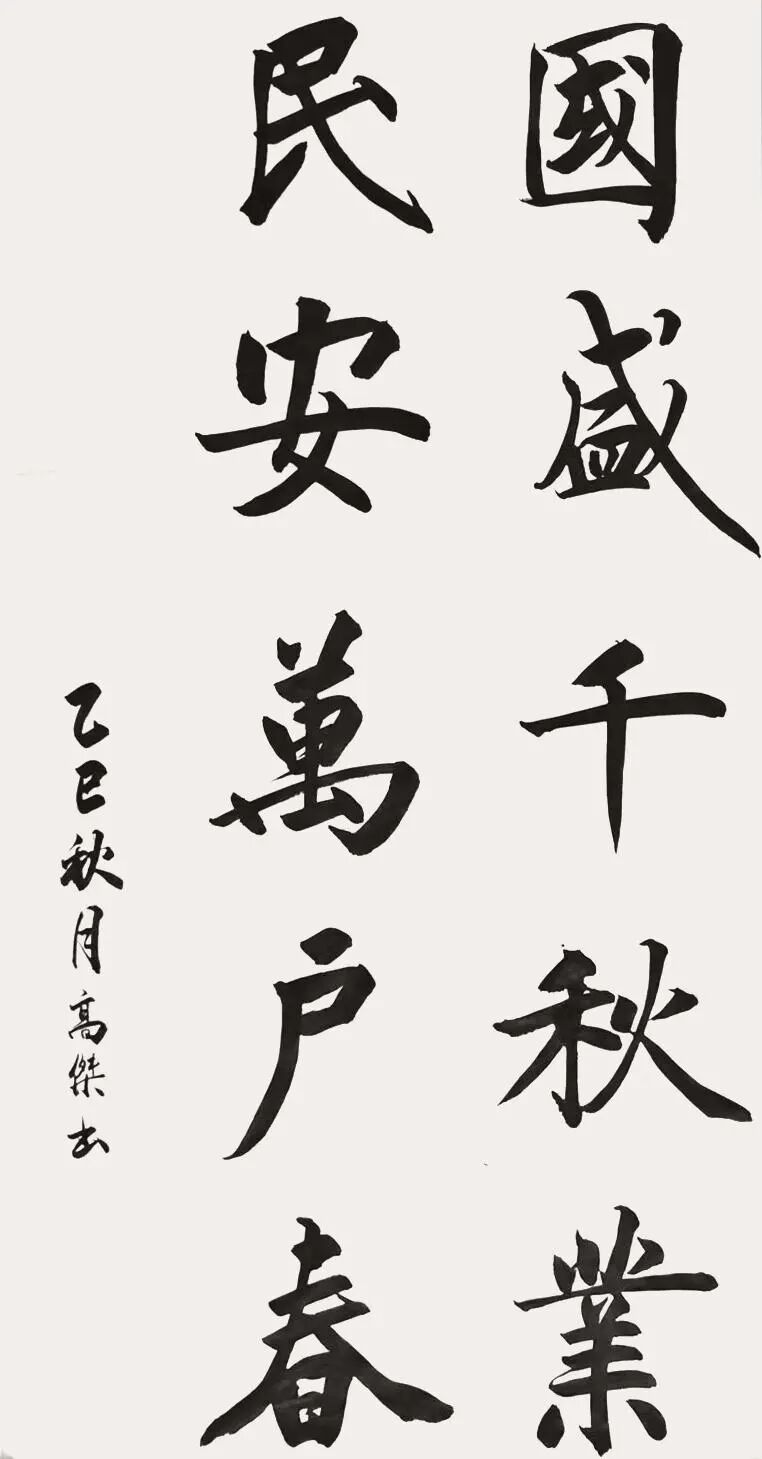 國盛千秋業
民安萬户春
乙巳秋月高傑书